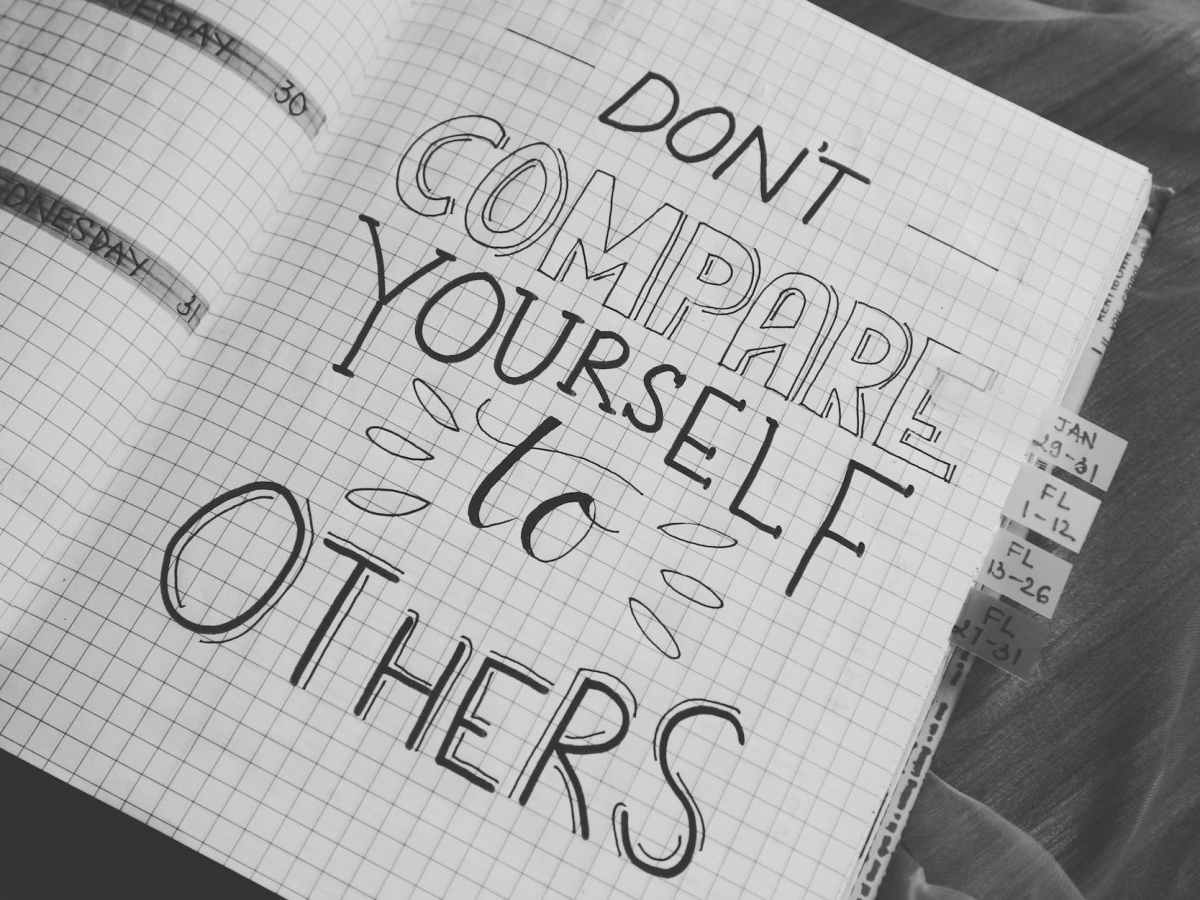 UESDAY 30
DNESDAY 31
DON'T
COMPARE
YOURSELF
to
OTHERS
JAN
29-31
FL
1-12
FL
13-26
FL
27-31